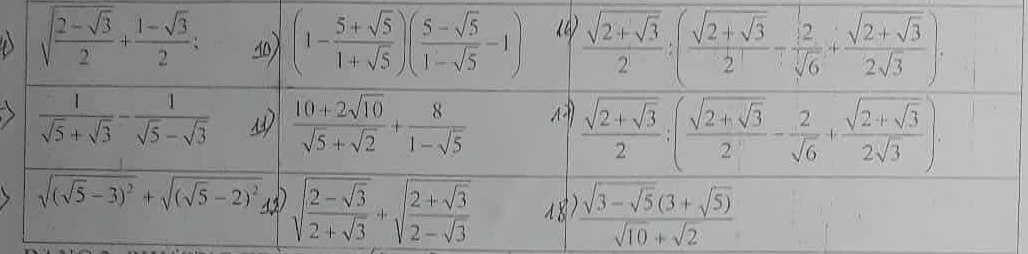 4) \sqrt{\frac{2-\sqrt{3}}{2}}+\frac{1-\sqrt{3}}{2}; 10) \left(1-\frac{5+\sqrt{5}}{1+\sqrt{5}}\right)\left(\frac{5-\sqrt{5}}{1-\sqrt{5}}-1\right) 16) \frac{\sqrt{2+\sqrt{3}}}{2}:\left(\frac{\sqrt{2+\sqrt{3}}}{2}-\frac{2}{\sqrt{6}}+\frac{\sqrt{2+\sqrt{3}}}{2\sqrt{3}}\right).
\frac{1}{\sqrt{5}+\sqrt{3}}-\frac{1}{\sqrt{5}-\sqrt{3}} 11) \frac{10+2\sqrt{10}}{\sqrt{5}+\sqrt{2}}+\frac{8}{1-\sqrt{5}} 17) \frac{\sqrt{2+\sqrt{3}}}{2}:\left(\frac{\sqrt{2+\sqrt{3}}}{2}-\frac{2}{\sqrt{6}}+\frac{\sqrt{2+\sqrt{3}}}{2\sqrt{3}}\right).
\sqrt{(\sqrt{5}-3)^2}+\sqrt{(\sqrt{5}-2)^2} 12) \sqrt{\frac{2-\sqrt{3}}{2+\sqrt{3}}}+\sqrt{\frac{2+\sqrt{3}}{2-\sqrt{3}}} 18) \frac{\sqrt{3-\sqrt{5}}(3+\sqrt{5})}{\sqrt{10}+\sqrt{2}}